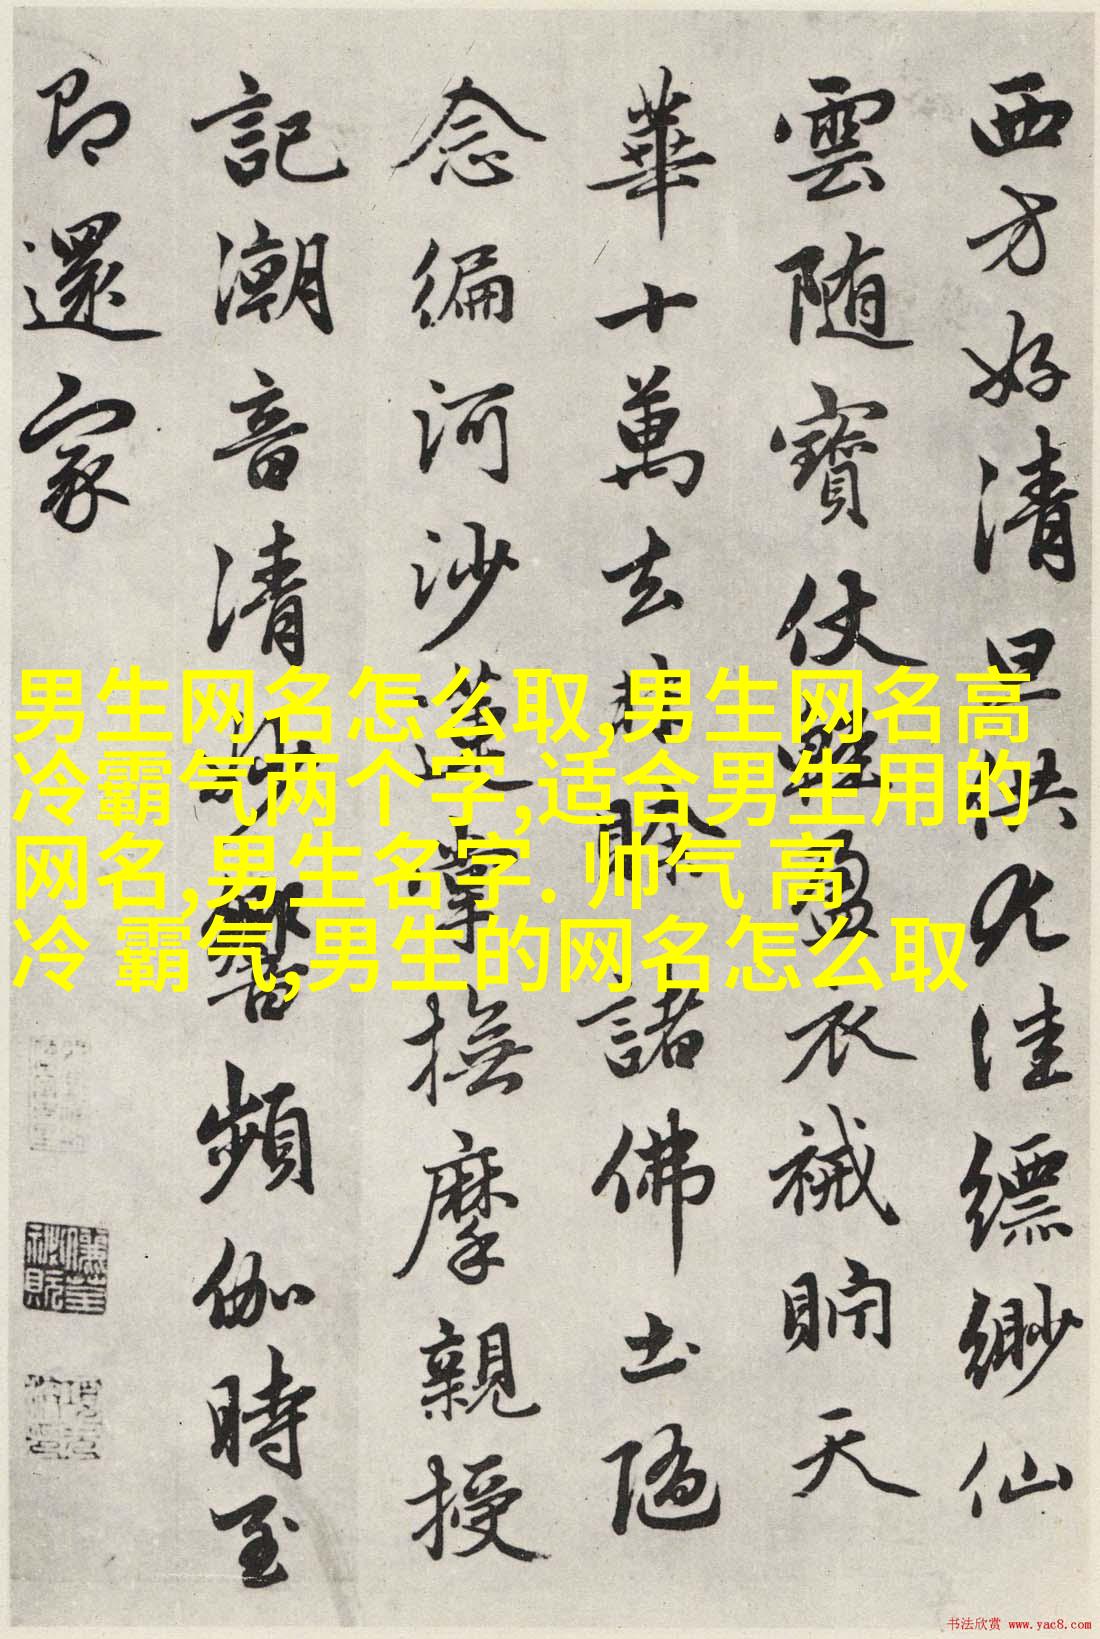 西方好清旦供尤佳縹緲仙
雲随寶仗輕盈衣裓貯天
華十萬去非賒諸佛土随
念徧河沙蓮掌撫摩親授
記潮音清妙響頻伽時至
即還家
男生网名怎么取,男生网名高
冷霸气两个字,适合男生用的
网名,男生名字. 帅气 高
冷 霸气,男生的网名怎么取
书法欣赏 www.yac8.com